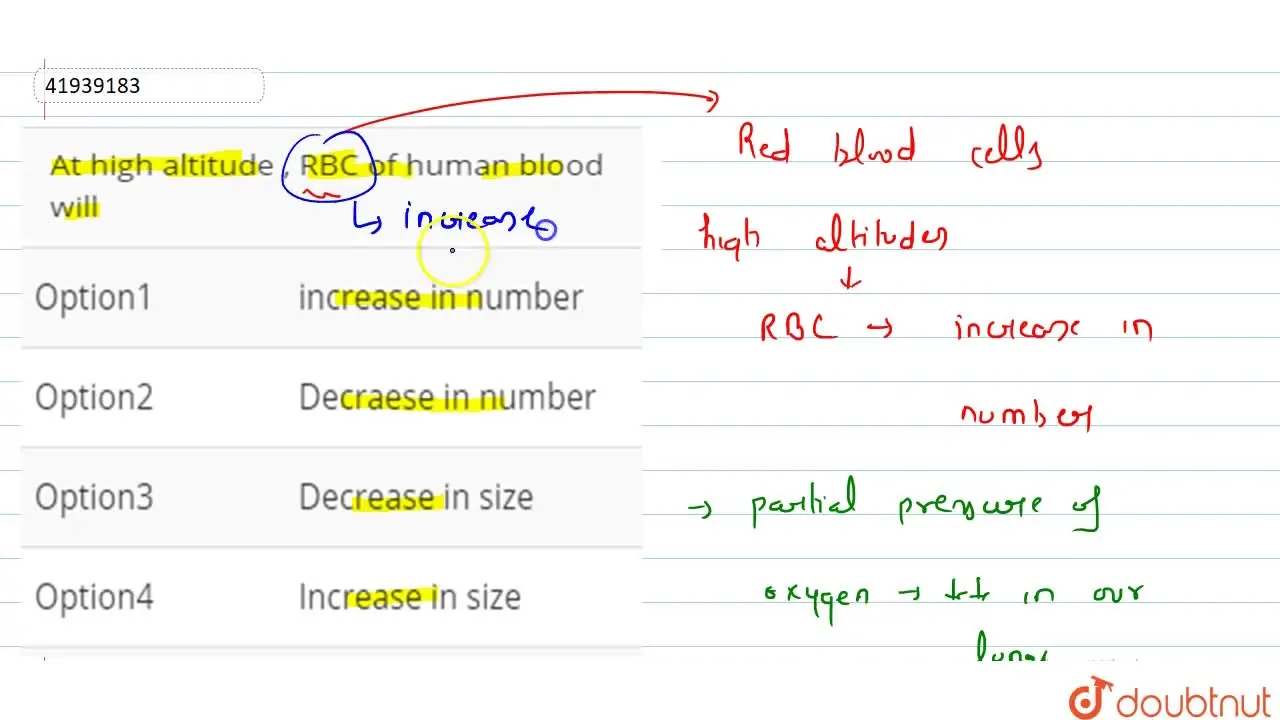 41939183
At high altitude , RBC of human blood
will
↳ increase
Option1 increase in number
Option2 Decraese in number
Option3 Decrease in size
Option4 Increase in size
Red blood cells
high altitudes
↓
RBC → increase in
number
→ partial pressure of
oxygen → ↓↓ in our
lungs
doubtnut